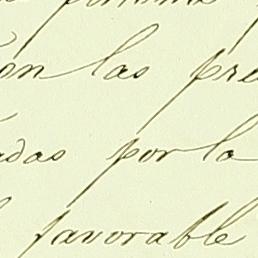 ón las pre
adas por la
favorable